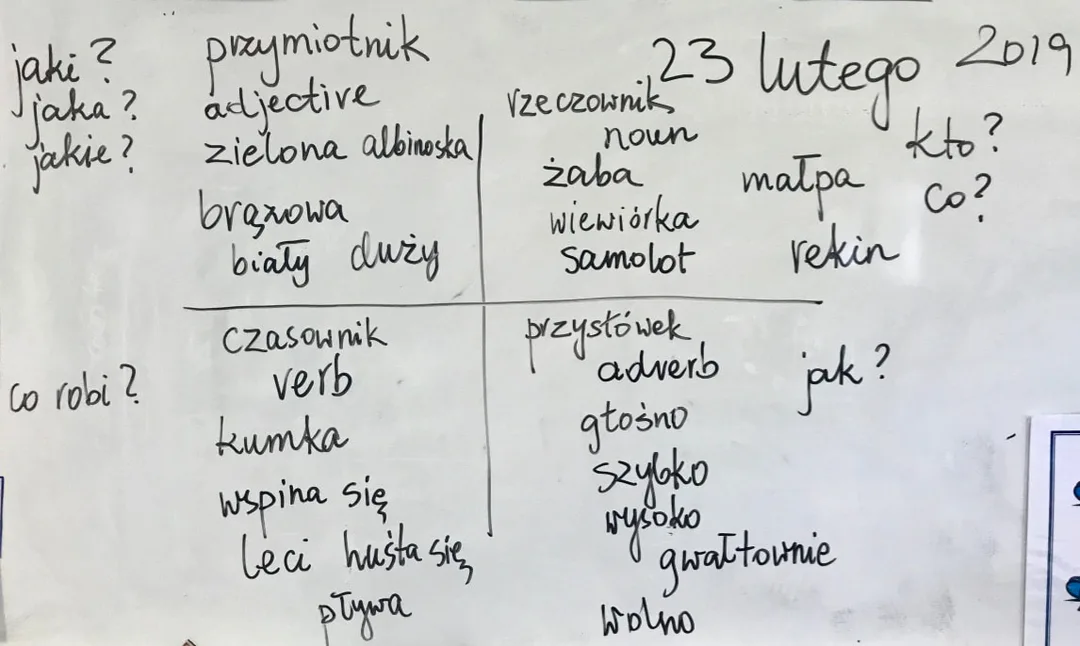 23 lutego 2019
jaki?
jaka?
jakie?
przymiotnik
adjective
zielona albinoska
brązowa
biały duży
rzeczownik
noun
żaba małpa
wiewiórka
samolot rekin
kto?
co?
co robi?
czasownik
verb
kumka
wspina się
leci huśta się
pływa
przysłówek
adverb
jak?
głośno
szybko
wysoko
gwałtownie
wolno